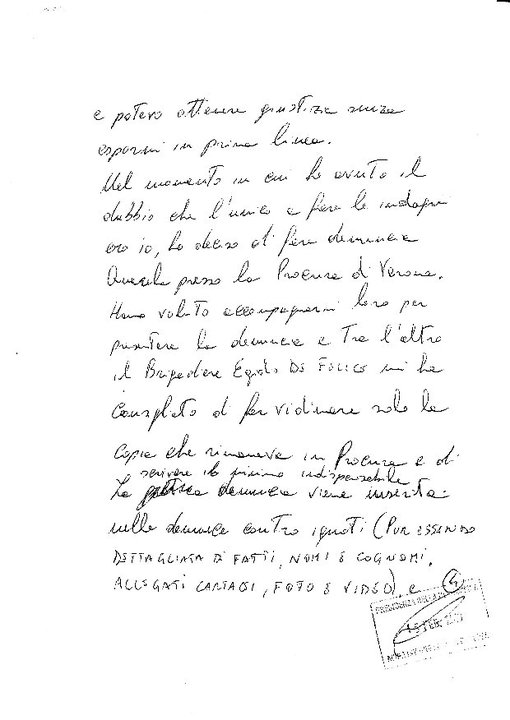 e potevo ottenere giustizia senza
espormi in prima linea.
Nel momento in cui ho avuto il
dubbio che l'unico a fare le indagini
ero io, ho deciso di fare denuncia
Querela presso la Procura di Verona.
Hanno voluto accompagnarmi loro per
presentare la denuncia e tra l'altro
il Brigadiere Egidio DE FELICE mi ha
consigliato di far vidimare solo la
copia che rimaneva in Procura e di
scrivere il minimo indispensabile
La denuncia viene inserita
nelle denunce contro ignoti (PUR ESSENDO
DETTAGLIATA DI FATTI, NOMI E COGNOMI,
ALLEGATI CARTACEI, FOTO E VIDEO), e